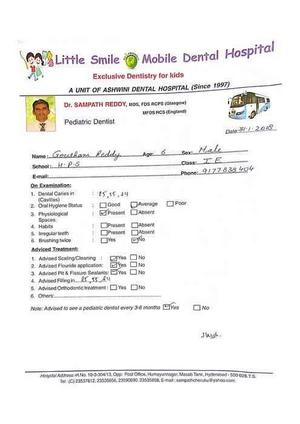 Little Smile Mobile Dental Hospital
Exclusive Dentistry for kids
A UNIT OF ASHWINI DENTAL HOSPITAL (Since 1997)
Dr. SAMPATH REDDY, MDS, FDS RCPS (Glasgow)
MFDS RCS (England)
Pediatric Dentist
Date: 31-1-2018
Name: Goutham Reddy Age: 6 Sex: Male
School: H.P.S Class: I E
E-mail: Phone: 9177838404
On Examination:
1. Dental Caries in : 85, 55, 84
(Cavities)
2. Oral Hygiene Status : Good Average Poor
3. Physiological : Present Absent
Spaces:
4. Habits : Present Absent
5. Irregular teeth : Present Absent
6. Brushing twice : Yes No
Adviced Treatment:
1. Advised Scaling/Cleaning : Yes No
2. Advised Fluoride application: Yes No
3. Advised Pit & Fissure Sealants: Yes No
4. Advised Filling in 85, 55, 84
5. Advised Orthodontic treatment : Yes No
6. Others:
Note: Advised to see a pediatric dentist every 3-6 months Yes No
Hospital Address: H.No. 10-3-304/13, Opp: Post Office, Humayunnagar, Masab Tank, Hyderabad - 500 028. T.S.
Tel: (C) 23537612, 23535656, 23590690, 23535858, E-mail: sampathcherulu@yahoo.com